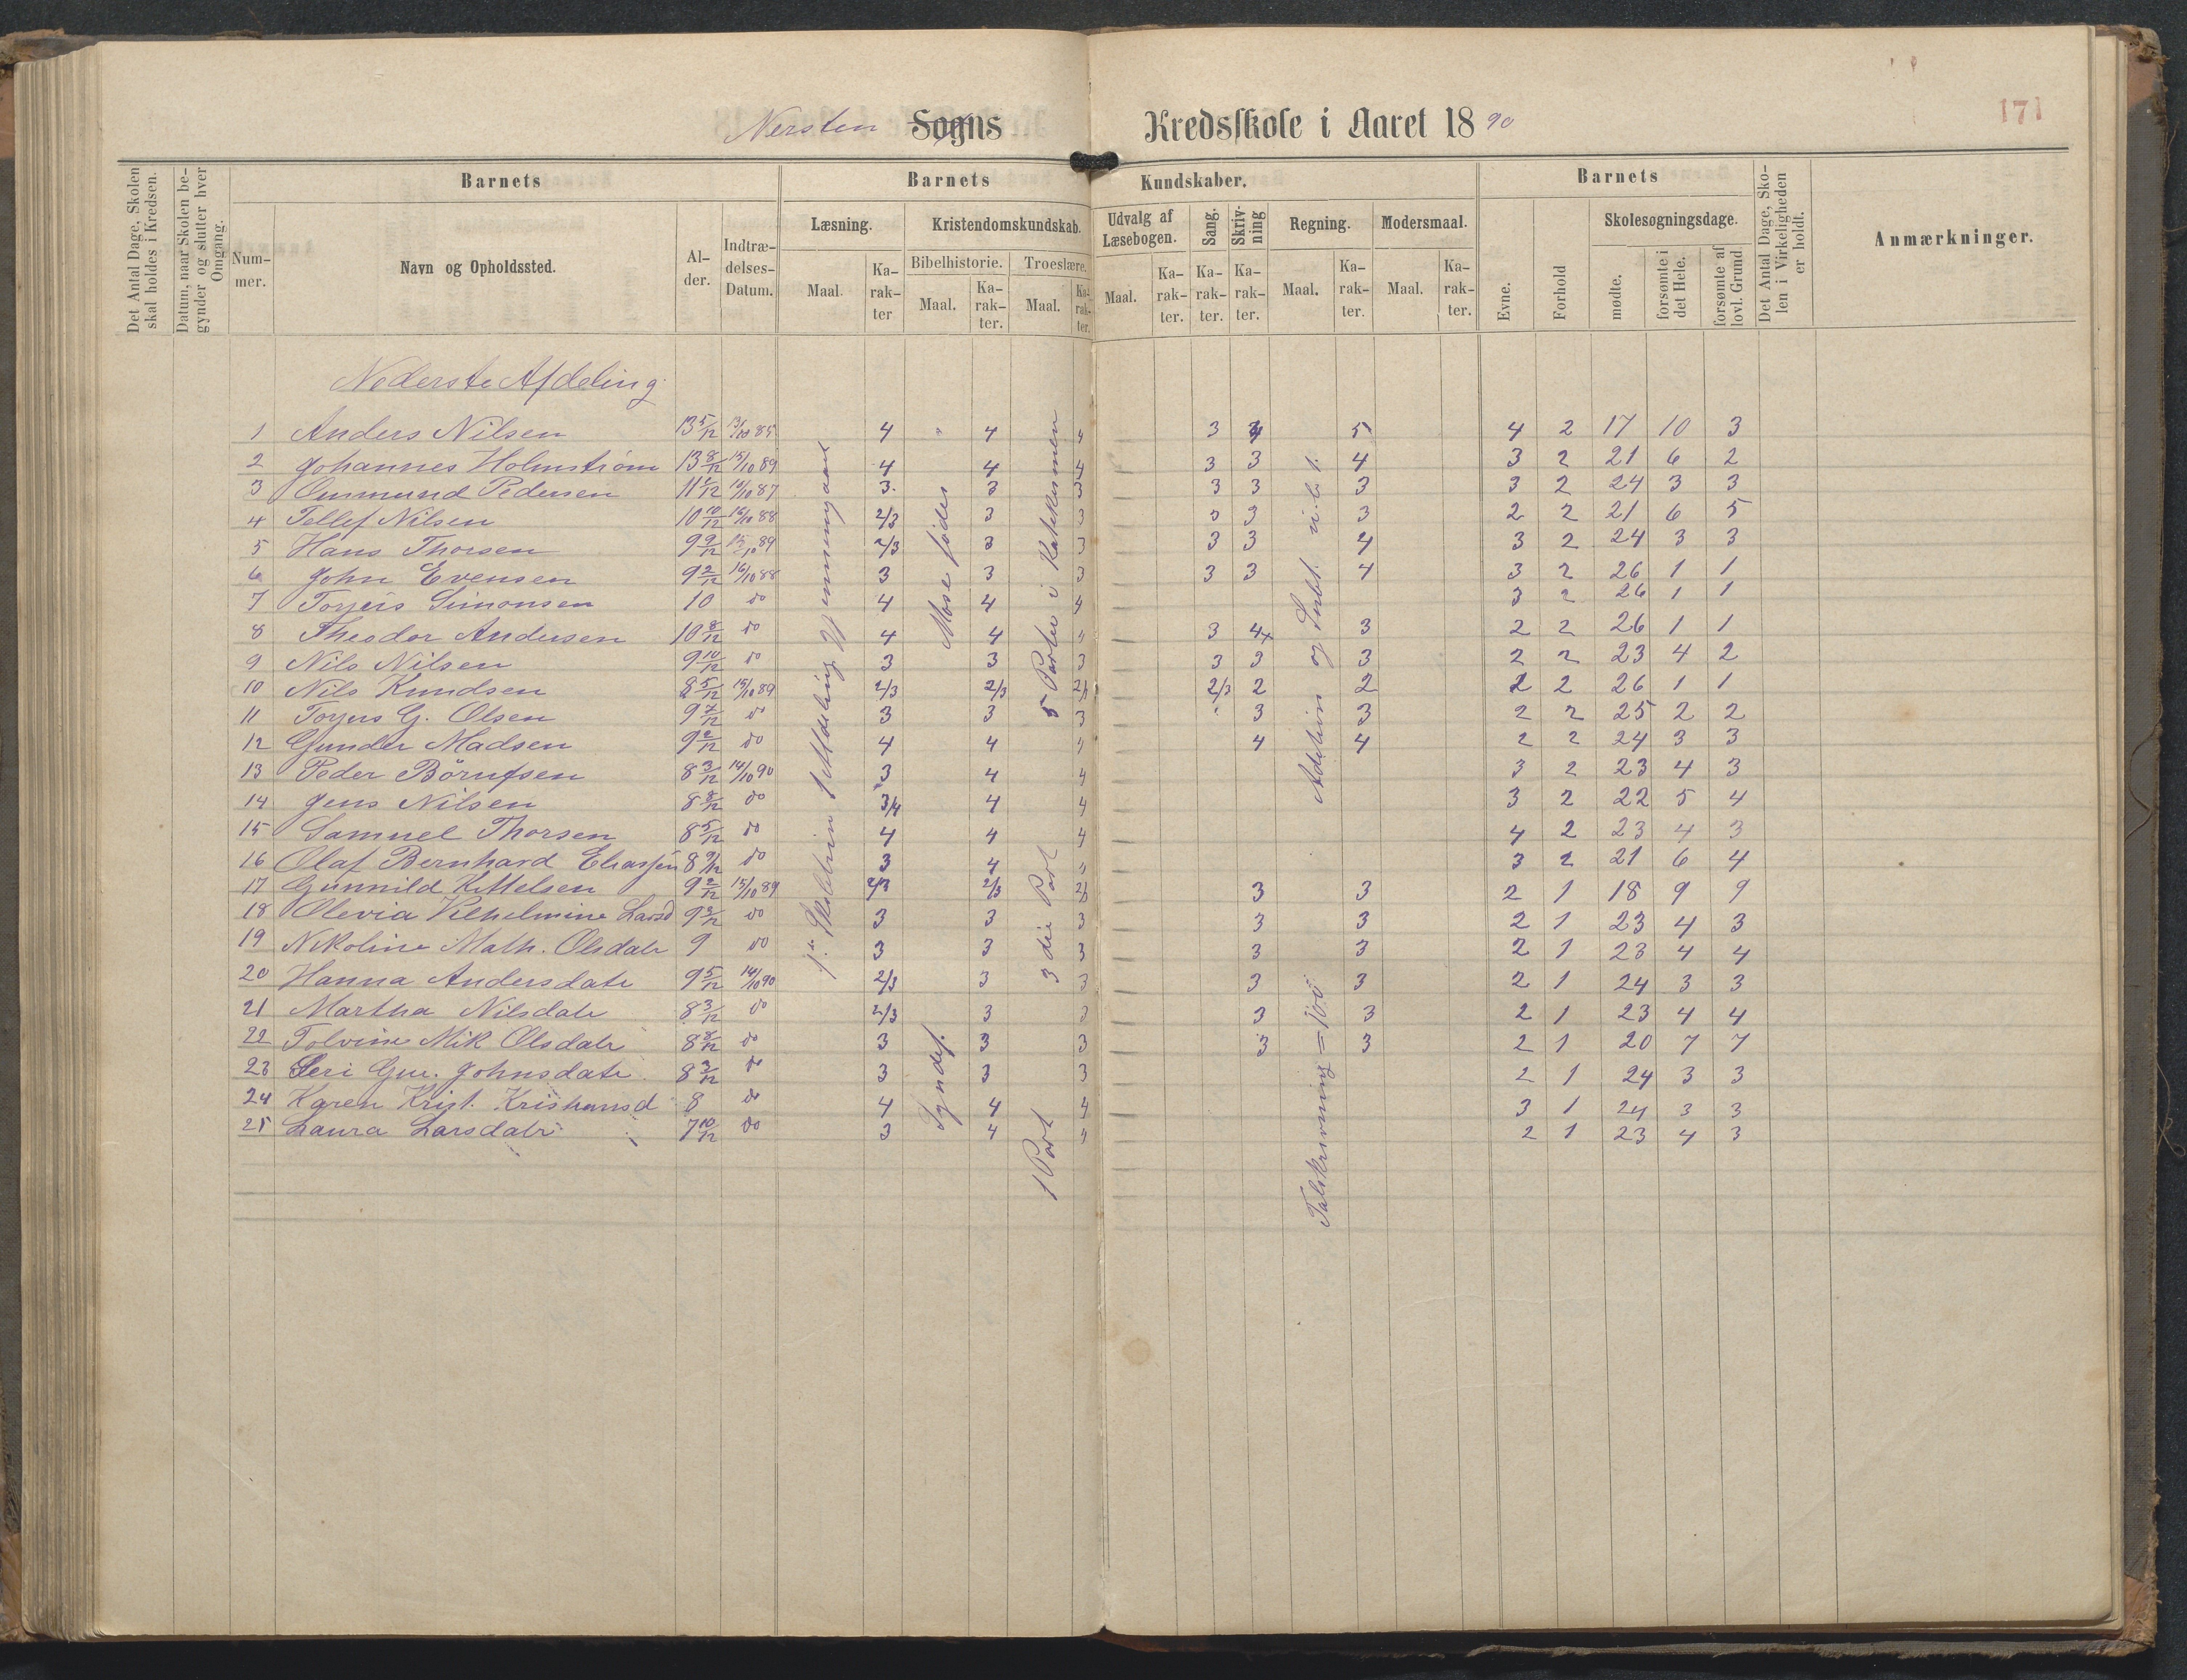 Nersten Sogns Kredsskole i Aaret 1890
171
Det Antal Dage, Skolen skal holdes i Kredsen.
Datum, naar Skolen begynder og slutter hver Omgang.
Barnets
Nummer.
Navn og Opholdssted.
Alder.
Indtrædelses-Datum.
Barnets Kundskaber.
Læsning.
Maal.
Karakter
Kristendomskundskab.
Bibelhistorie.
Maal.
Karakter.
Troeslære.
Maal.
Karakter.
Udvalg af Læsebogen.
Maal.
Karakter.
Sang.
Karakter.
Skrivning
Karakter.
Regning.
Maal.
Karakter.
Modersmaal.
Maal.
Karakter.
Barnets
Evne.
Forhold
Skolesøgningsdage.
mødte.
forsømte i det Hele.
forsømte af lovl. Grund
Det Antal Dage, Skolen i Virkeligheden er holdt.
Anmærkninger.
Nederste Afdeling
1 Anders Nilsen 13 5/12 13/10 85 4 4 4 3 4 5 4 2 17 10 3
2 Johannes Holmstrøm 13 8/12 15/10 89 4 4 4 3 3 4 3 2 21 6 2
3 Pedersen 3 3 3 3 3 3 3 2 24 3 3
4 Tellef Nilsen 10 10/12 16/10 88 2/3 3 3 3 3 3 2 2 21 6 5
5 Hans Thorsen 9 9/12 15/10 89 2/3 3 3 3 3 4 3 2 24 3 3
6 John Evensen 9 2/12 16/10 88 3 3 3 3 3 4 3 2 26 1 1
7 Torjeis Simonsen 10 do 4 4 4 3 2 26 1 1
8 Theodor Andersen 10 8/12 do 4 4 4 3 4x 3 2 2 26 1 1
9 Nils Nilsen 9 10/12 do 3 3 3 3 3 3 2 2 23 4 2
10 Nils Knudsen 8 5/12 15/10 89 2/3 2/3 2/3 2/3 2 2 2 2 26 1 1
11 G. Olsen 9 7/12 do 3 3 3 3 3 2 2 25 2 2
12 Gunder Madsen 9 2/12 do 4 4 4 4 4 2 2 24 3 3
13 Peder Börufsen 8 3/12 14/10 90 3 4 4 3 2 23 4 3
14 Jens Nilsen 8 8/12 do 3/4 4 4 3 2 22 5 4
15 Samuel Thorsen 8 5/12 do 4 4 4 4 2 23 4 3
16 Olaf Bernhard Eliassen 8 9/12 do 3 4 4 3 2 21 6 4
17 Gunnild Kittelsen 9 2/12 15/10 89 2/3 2/3 2/3 3 3 2 1 18 9 9
18 Olevia Vilhelmine Larsd 9 3/12 do 3 3 3 3 3 2 1 23 4 3
19 Nikoline Math. Olsdatr 9 do 3 3 3 3 3 2 1 23 4 4
20 Hanna Andersdatr 9 5/12 14/10 90 2/3 3 3 3 3 2 1 24 3 3
21 Martha Nilsdatr 8 3/12 do 2/3 3 3 3 3 2 1 23 4 4
22 Tolvine Mik Olsdatr 8 8/12 do 3 3 3 3 3 2 1 20 7 7
23 Seri Gur. Johnsdatr 8 3/12 do 3 3 3 2 1 24 3 3
24 Karen Krist. Kristiansd 8 do 4 4 4 3 1 24 3 3
25 Laura Larsdatr 7 10/12 do 3 4 4 2 1 23 4 3
Mose födes
Syndef.
5 Parter i Katekismen
3die Part
1 Part
Addition og Subt.
Talskrivning = 100